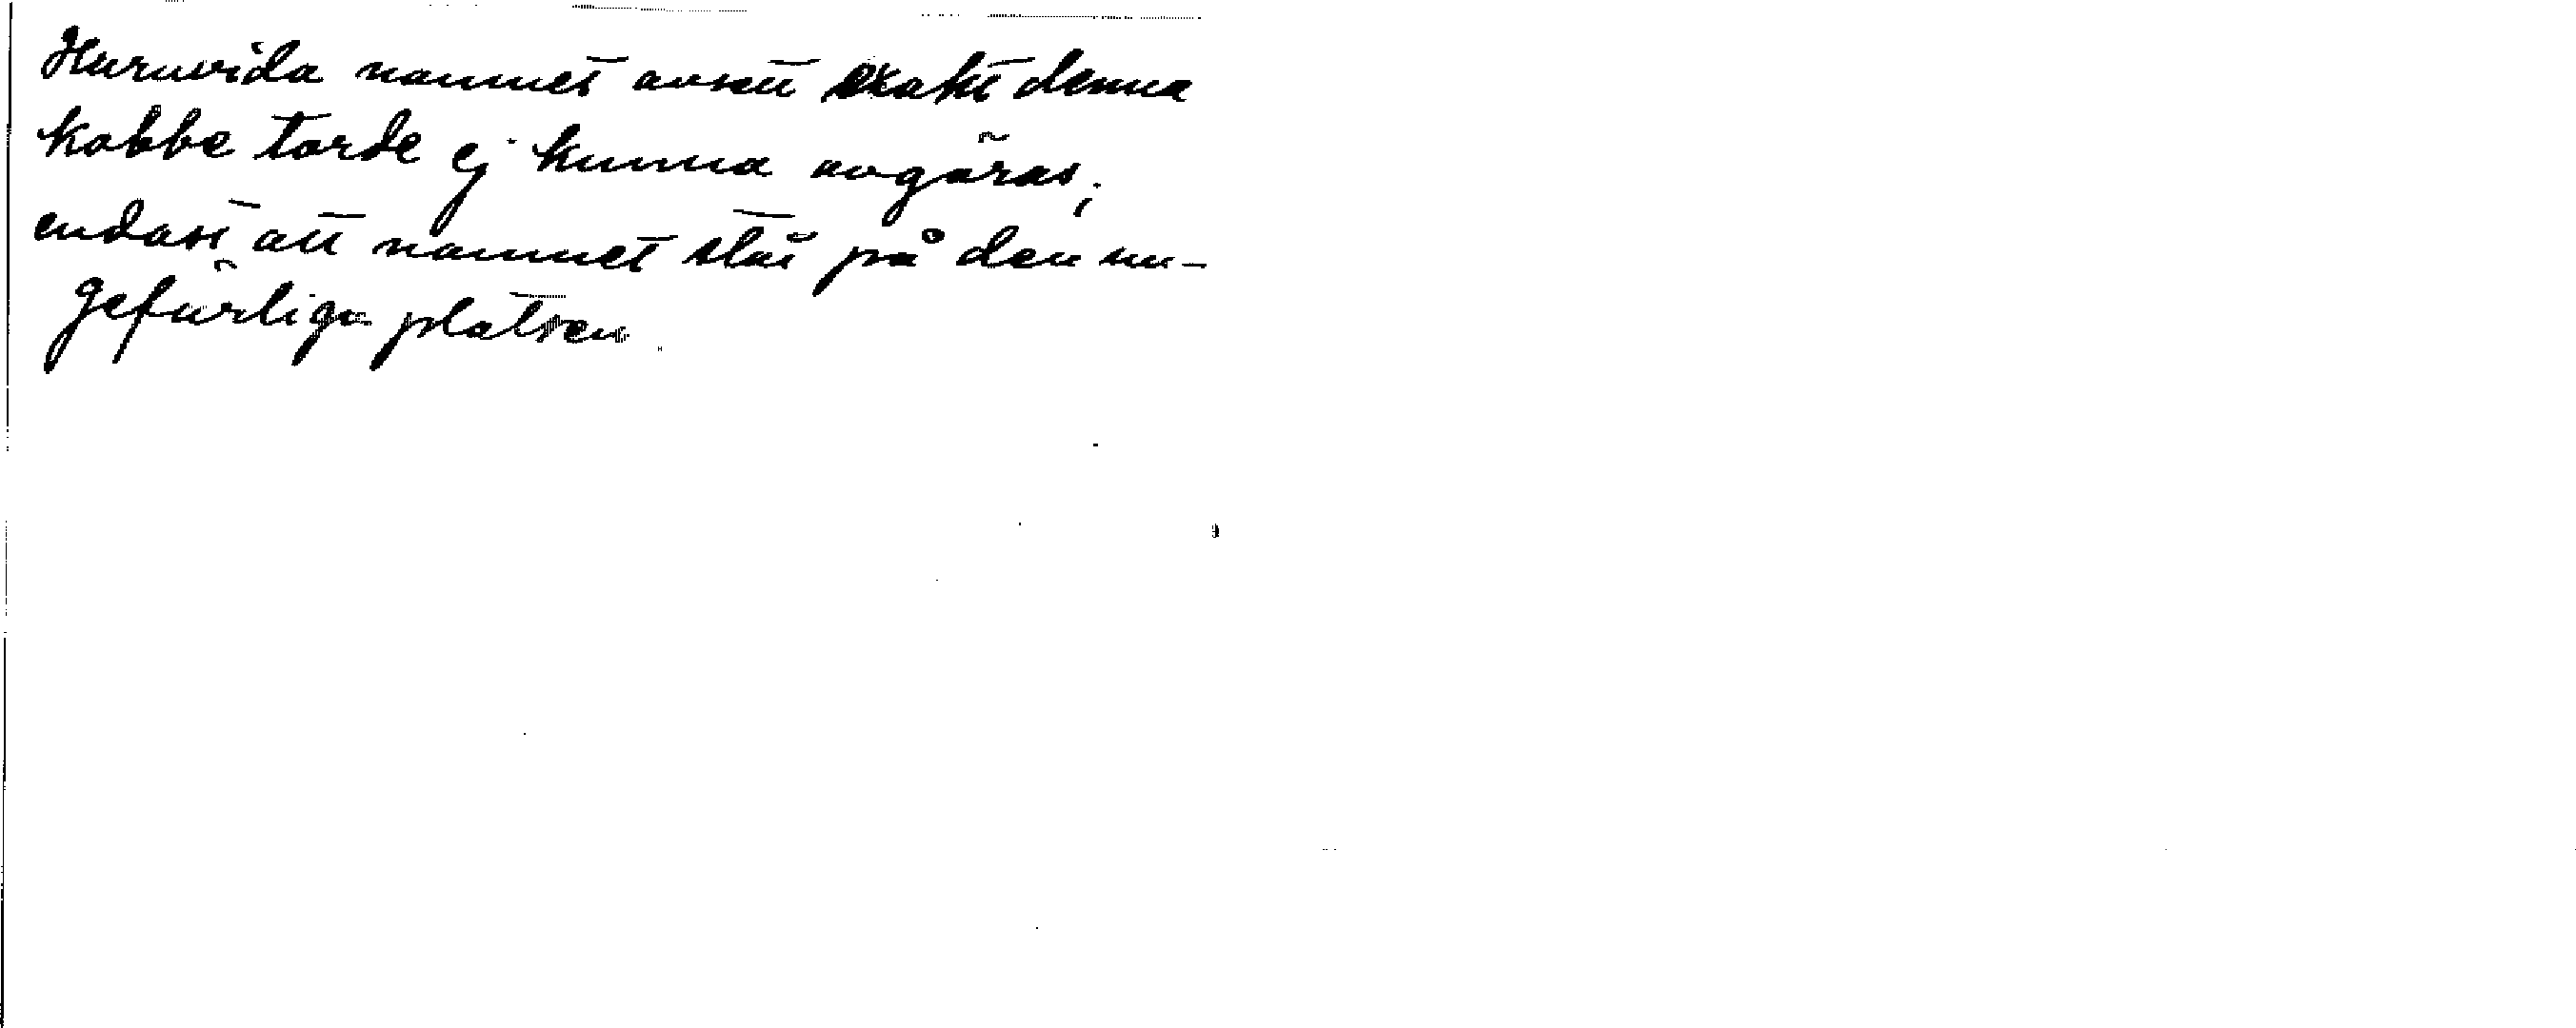 Huruvida namnet avsett exakt denna
kobbe torde ej kunna avgöras;
endast att namnet står på den un-
gefärliga platsen.